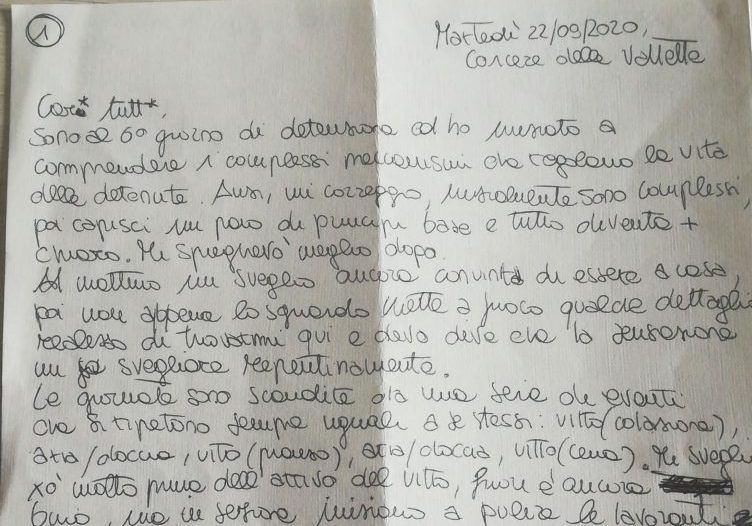 1
Martedì 22/09/2020,
Carcere delle Vallette
Car* tutt*,
Sono al 6° giorno di detenzione ed ho iniziato a
comprendere i complessi meccanismi che regolano la vita
delle detenute. Anzi, mi correggo, inizialmente sono complessi,
poi capisci un paio di principi base e tutto diventa +
chiaro. Mi spiegherò meglio dopo.
Al mattino mi sveglio ancora convinta di essere a casa,
poi non appena lo sguardo mette a fuoco qualche dettaglio
realizzo di trovarmi qui e devo dire che la sensazione
mi fa svegliare repentinamente.
Le giornate sono scandite da una serie di eventi
che si ripetono sempre uguali a se stessi: vitto (colazione),
aria/doccia, vitto (pranzo), aria/doccia, vitto (cena). Mi sveglio
xò molto prima dell'arrivo del vitto, fuori è ancora
buio, ma in sezione iniziano a pulire le lavoranti e